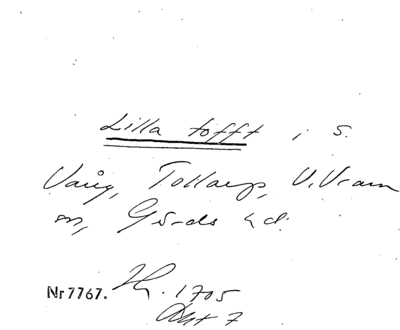 Lilla tofft, S.
Vång, Tollarp, V. Vram
sn, Gärds hd.
Nr 7767. 1705
Akt 7